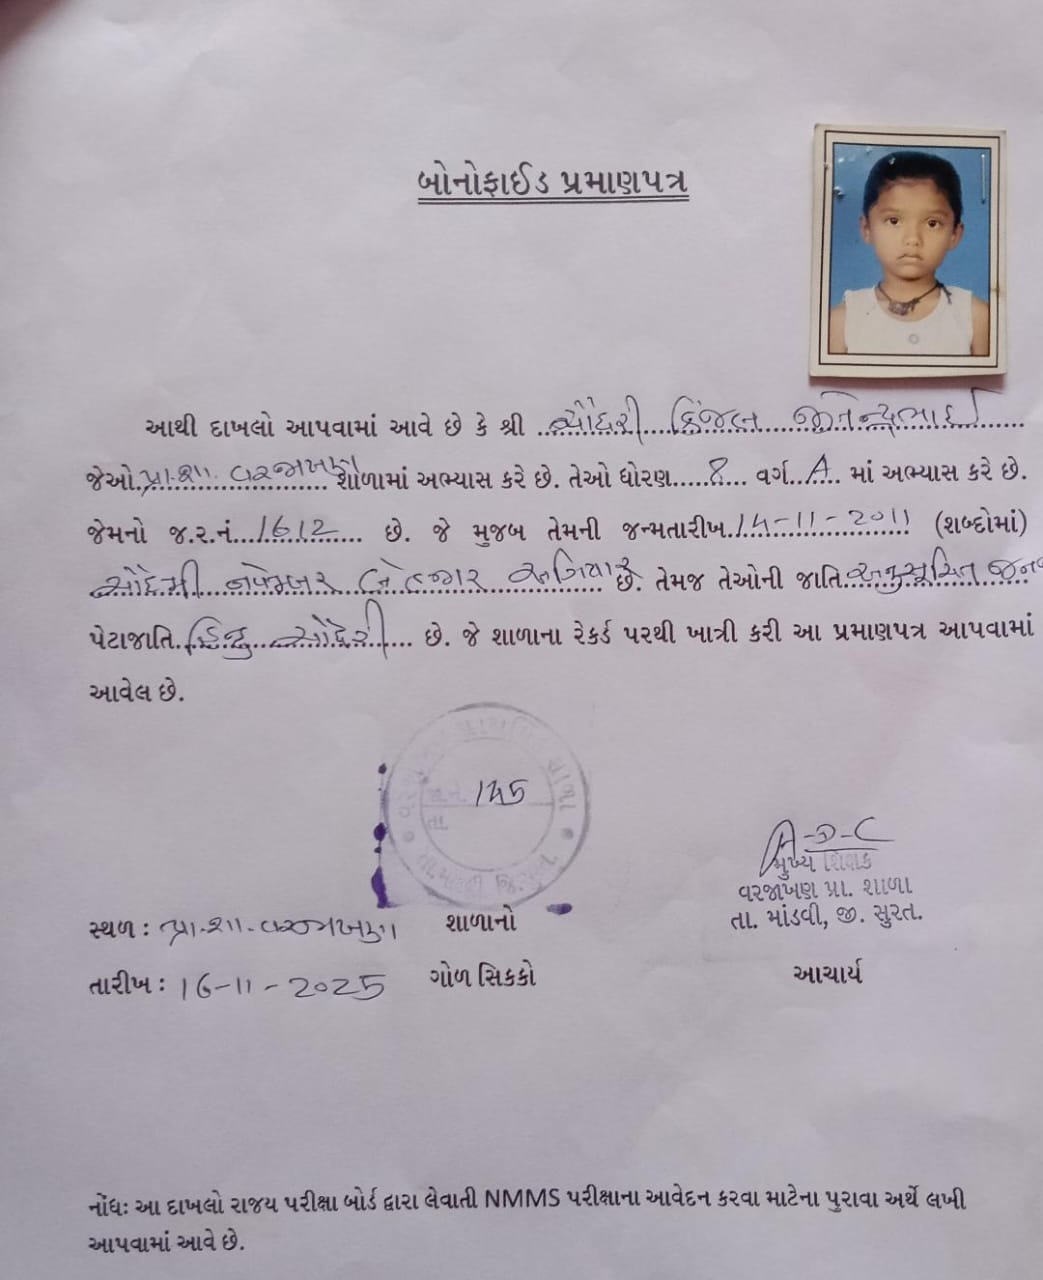 બોનોફાઈડ પ્રમાણપત્ર
આથી દાખલો આપવામાં આવે છે કે શ્રી ચૌધરી કિંજલ જીતેન્દ્રભાઈ
જેઓ પ્રા.શા. વરજાખણ શાળામાં અભ્યાસ કરે છે. તેઓ ધોરણ 8 વર્ગ A માં અભ્યાસ કરે છે.
જેમનો જ.ર.નં. 1612 છે. જે મુજબ તેમની જન્મતારીખ 14-11-2011 (શબ્દોમાં)
ચૌદમી નવેમ્બર બે હજાર અગિયાર છે. તેમજ તેઓની જાતિ અનુસૂચિત જન
પેટાજાતિ હિન્દુ ચૌધરી છે. જે શાળાના રેકર્ડ પરથી ખાત્રી કરી આ પ્રમાણપત્ર આપવામાં
આવેલ છે.
જા.નં. 145
તા.
મુખ્ય શિક્ષક
વરજાખણ પ્રા. શાળા
તા. માંડવી, જી. સુરત.
સ્થળ : પ્રા.શા. વરજાખણ શાળાનો
તારીખ : 16-11-2025 ગોળ સિકકો આચાર્ય
નોંધઃ આ દાખલો રાજય પરીક્ષા બોર્ડ દ્વારા લેવાતી NMMS પરીક્ષાના આવેદન કરવા માટેના પુરાવા અર્થે લખી
આપવામાં આવે છે.